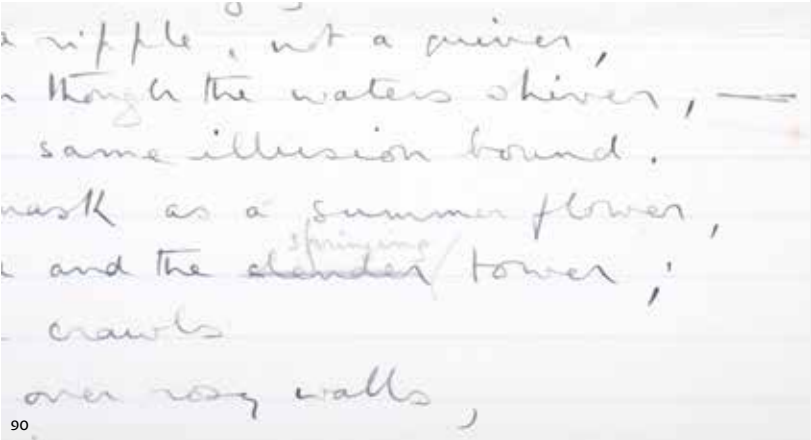 a ripple, not a quiver,
though the waters shiver, —
same illusion bound.
mask as a summer flower,
springing
and the slender tower;
crawls
over rosy walls,
90